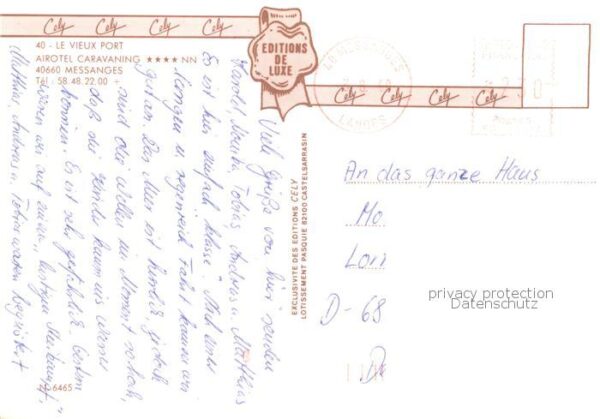 Cely
Cely
Cely
40 - LE VIEUX PORT
AIROTEL CARAVANING ★★★★ NN
40660 MESSANGES
Tél. 58.48.22.00 +
EDITIONS
DE
LUXE
Cely
Cely
Cely
Cely
40 MESSANGES
LANDES
EXCLUSIVITE DES EDITIONS CELY
LOTISSEMENT PASQUIE 82100 CASTELSARRASIN
Viele Grüße von hier senden
Harald, Tobias, Andreas u. Matthias
Es ist hier einfach klasse. Nach einer
u. Fahrt kamen wir
gut an. Das Meer ist herrlich, jedoch
sind die Wellen im Moment so hoch,
daß die Kinder kaum ins Wasser
können. Es ist sehr gefährlich. Gestern
waren wir auf einem
Matthias, Andreas u. Tobias waren begeistert
6465
An das ganze Haus
Mo
D-68
D
privacy protection
Datenschutz